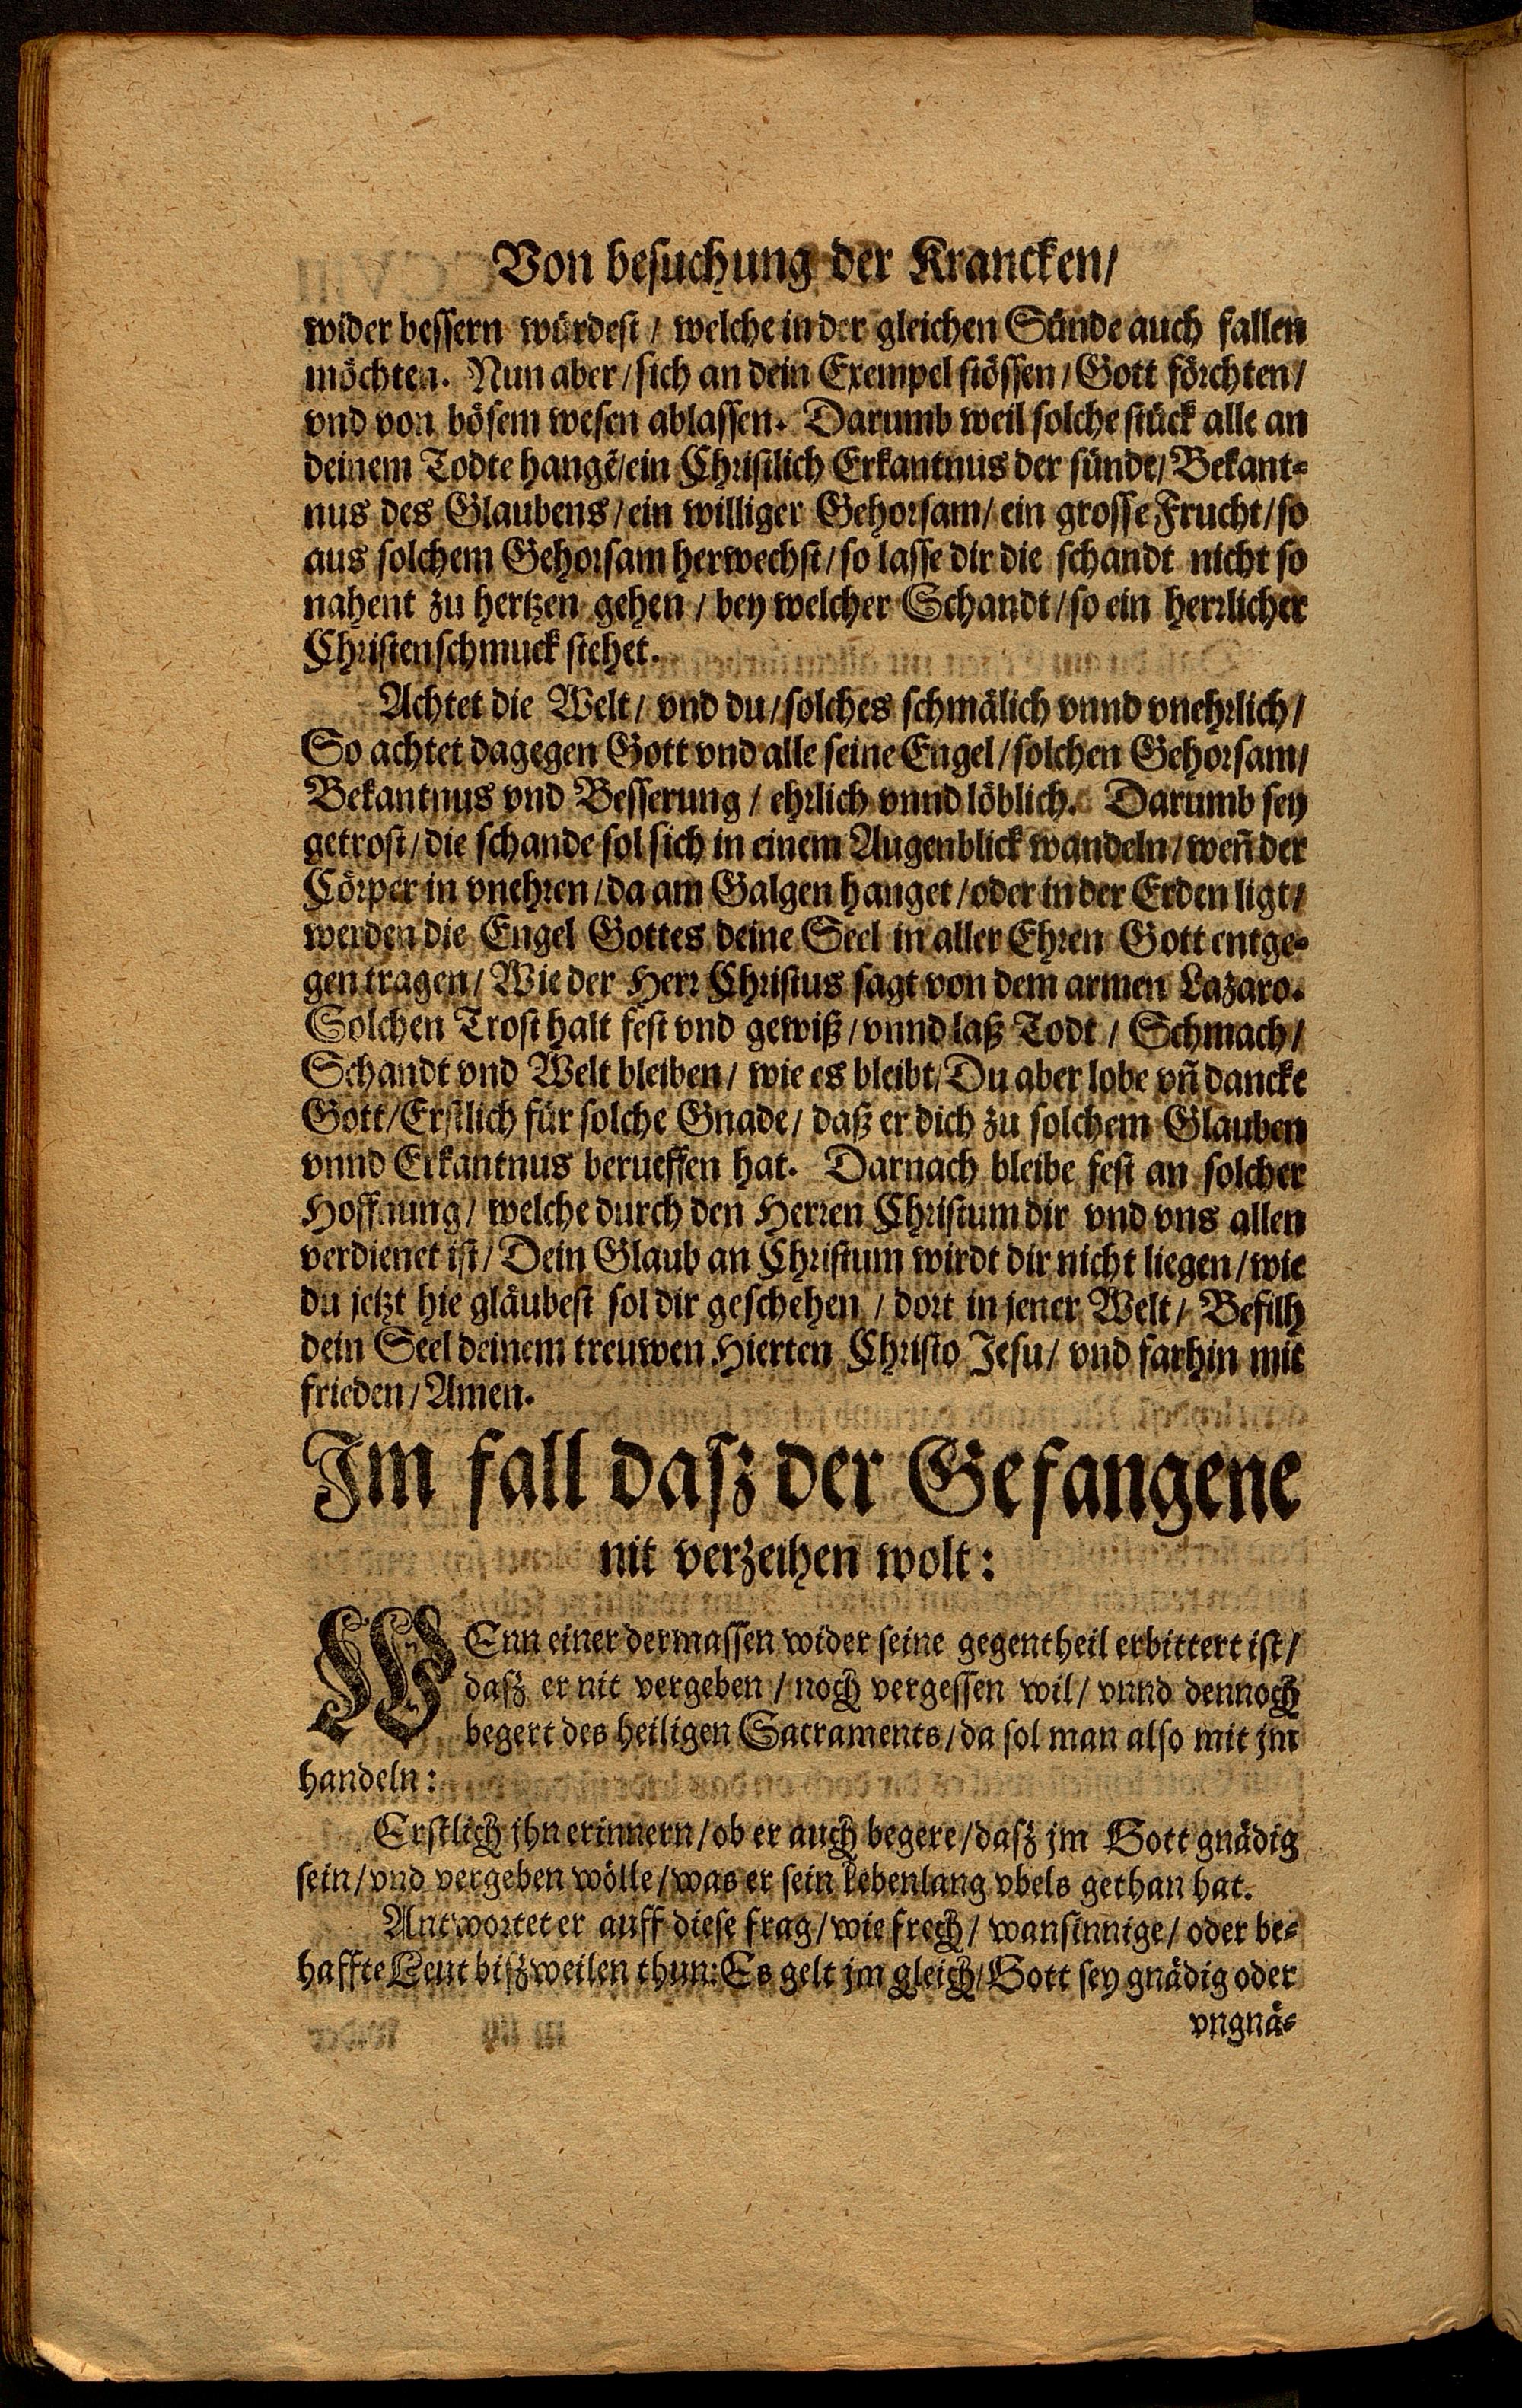 Von besuchung der Krancken/
wider bessern würdest / welche in der gleichen Sünde auch fallen
möchten. Nun aber / sich an dein Exempel stössen / Gott förchten /
vnd von bösem wesen ablassen. Darumb weil solche stück alle an
deinem Todte hangē/ein Christlich Erkantnus der sündt/Bekant-
nus des Glaubens / ein williger Gehorsam / ein grosse Frucht / so
aus solchem Gehorsam herwechst / so lasse dir die schandt nicht so
nahent zu hertzen gehen / bey welcher Schandt / so ein herrlicher
Christenschmuck stehet.
Achtet die Welt / vnd du / solches schmälich vnnd vnehrlich /
So achtet dagegen Gott vnd alle seine Engel / solchen Gehorsam /
Bekantnus vnd Besserung / ehrlich vnnd löblich. Darumb sey
getrost / die schande sol sich in einem Augenblick wandeln / weñ der
Cörper in vnehren / da am Galgen hanget / oder in der Erden ligt /
werden die Engel Gottes deine Seel in aller Ehren Gott entge-
gen tragen / Wie der Herr Christus sagt von dem armen Lazaro.
Solchen Trost halt fest vnd gewiß / vnnd laß Todt / Schmach /
Schandt vnd Welt bleiben / wie es bleibt / Du aber lobe vñ dancke
Gott / Erstlich für solche Gnade / daß er dich zu solchem Glauben
vnnd Erkantnus berueffen hat. Darnach bleibe fest an solcher
Hoffnung / welche durch den Herren Christum dir vnd vns allen
verdienet ist / Dein Glaub an Christum wirdt dir nicht liegen / wie
du jetzt hie gläubest sol dir geschehen / dort in jener Welt / Befilh
dein Seel deinem treuwen Hierten Christo Jesu / vnd farhin mit
frieden / Amen.
Im fall dasz der Gefangene
nit verzeihen wolt:
WEnn einer dermassen wider seine gegentheil erbittert ist /
dasz er nit vergeben / noch vergessen wil / vnnd dennoch
begert des heiligen Sacraments / da sol man also mit jm
handeln:
Erstlich jhn erinnern / ob er auch begere / dasz jm Gott gnädig
sein / vnd vergeben wölle / was er sein lebenlang vbels gethan hat.
Antwortet er auff diese frag / wie frech / wansinnige / oder be-
haffte Leut biszweilen thun: Es gelt jm gleich / Gott sey gnädig oder
vngnä-